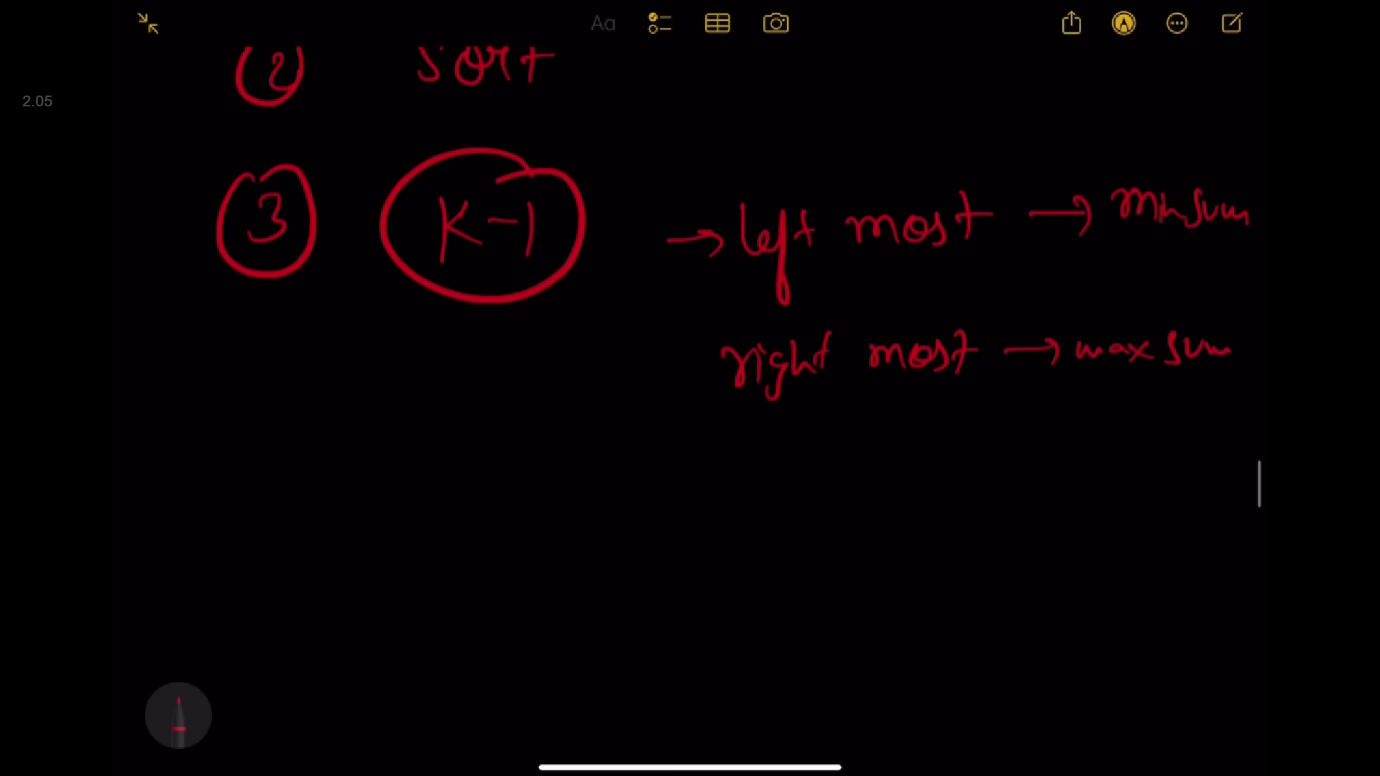 Aa
② sort
2.05
③ K-1 → left most → minsum
right most → max sum